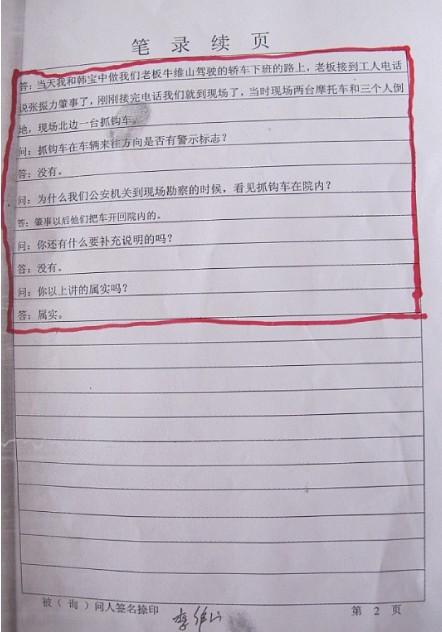 笔录续页
答：当天我和韩宝中做我们老板牛维山驾驶的轿车下班的路上，老板接到工人电话
说张振力肇事了，刚刚接完电话我们就到现场了，当时现场两台摩托车和三个人倒
地，现场北边一台抓钩车。
问：抓钩车在车辆来往方向是否有警示标志？
答：没有。
问：为什么我们公安机关到现场勘察的时候，看见抓钩车在院内？
答：肇事以后他们把车开回院内的。
问：你还有什么要补充说明的吗？
答：没有。
问：你以上讲的属实吗？
答：属实。
被（询）问人签名捺印
第 2 页